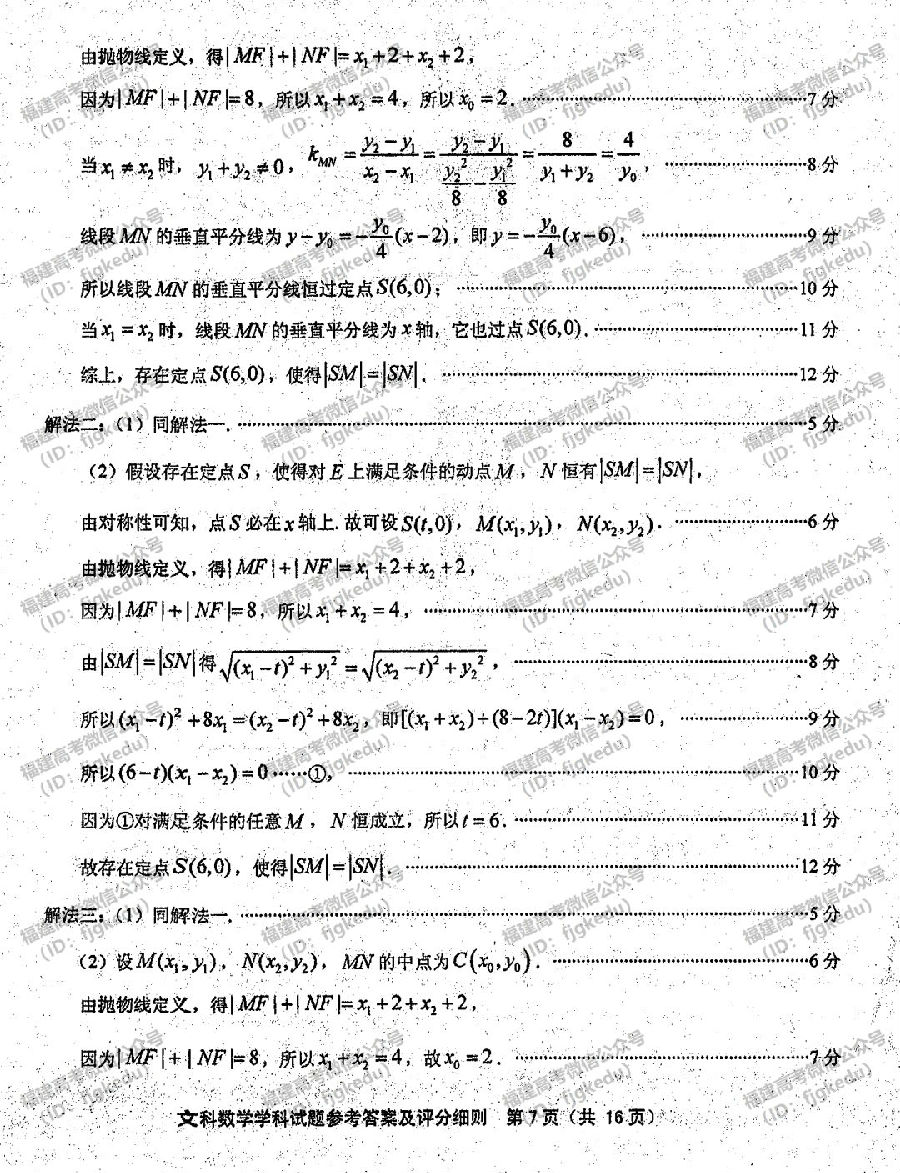 由抛物线定义，得|MF|+|NF|=x₁+2+x₂+2，
因为|MF|+|NF|=8，所以x₁+x₂=4，所以x₀=2．……7分
当x₁≠x₂时，y₁+y₂≠0，k_MN=(y₂-y₁)/(x₂-x₁)=(y₂-y₁)/(y₂²/8-y₁²/8)=8/(y₁+y₂)=4/y₀，……8分
线段MN的垂直平分线为y-y₀=-y₀/4(x-2)，即y=-y₀/4(x-6)，……9分
所以线段MN的垂直平分线恒过定点S(6,0)；……10分
当x₁=x₂时，线段MN的垂直平分线为x轴，它也过点S(6,0)．……11分
综上，存在定点S(6,0)，使得|SM|=|SN|．……12分
解法二：（1）同解法一．……5分
（2）假设存在定点S，使得对E上满足条件的动点M，N恒有|SM|=|SN|，
由对称性可知，点S必在x轴上．故可设S(t,0)，M(x₁,y₁)，N(x₂,y₂)．……6分
由抛物线定义，得|MF|+|NF|=x₁+2+x₂+2，
因为|MF|+|NF|=8，所以x₁+x₂=4，……7分
由|SM|=|SN|得√((x₁-t)²+y₁²)=√((x₂-t)²+y₂²)，……8分
所以(x₁-t)²+8x₁=(x₂-t)²+8x₂，即[(x₁+x₂)+(8-2t)](x₁-x₂)=0，……9分
所以(6-t)(x₁-x₂)=0……①，……10分
因为①对满足条件的任意M，N恒成立，所以t=6．……11分
故存在定点S(6,0)，使得|SM|=|SN|．……12分
解法三：（1）同解法一．……5分
（2）设M(x₁,y₁)，N(x₂,y₂)，MN的中点为C(x₀,y₀)．……6分
由抛物线定义，得|MF|+|NF|=x₁+2+x₂+2，
因为|MF|+|NF|=8，所以x₁+x₂=4，故x₀=2．……7分
文科数学学科试题参考答案及评分细则 第7页（共 16页）
福建高考微信公众号
(ID: fjgkedu)